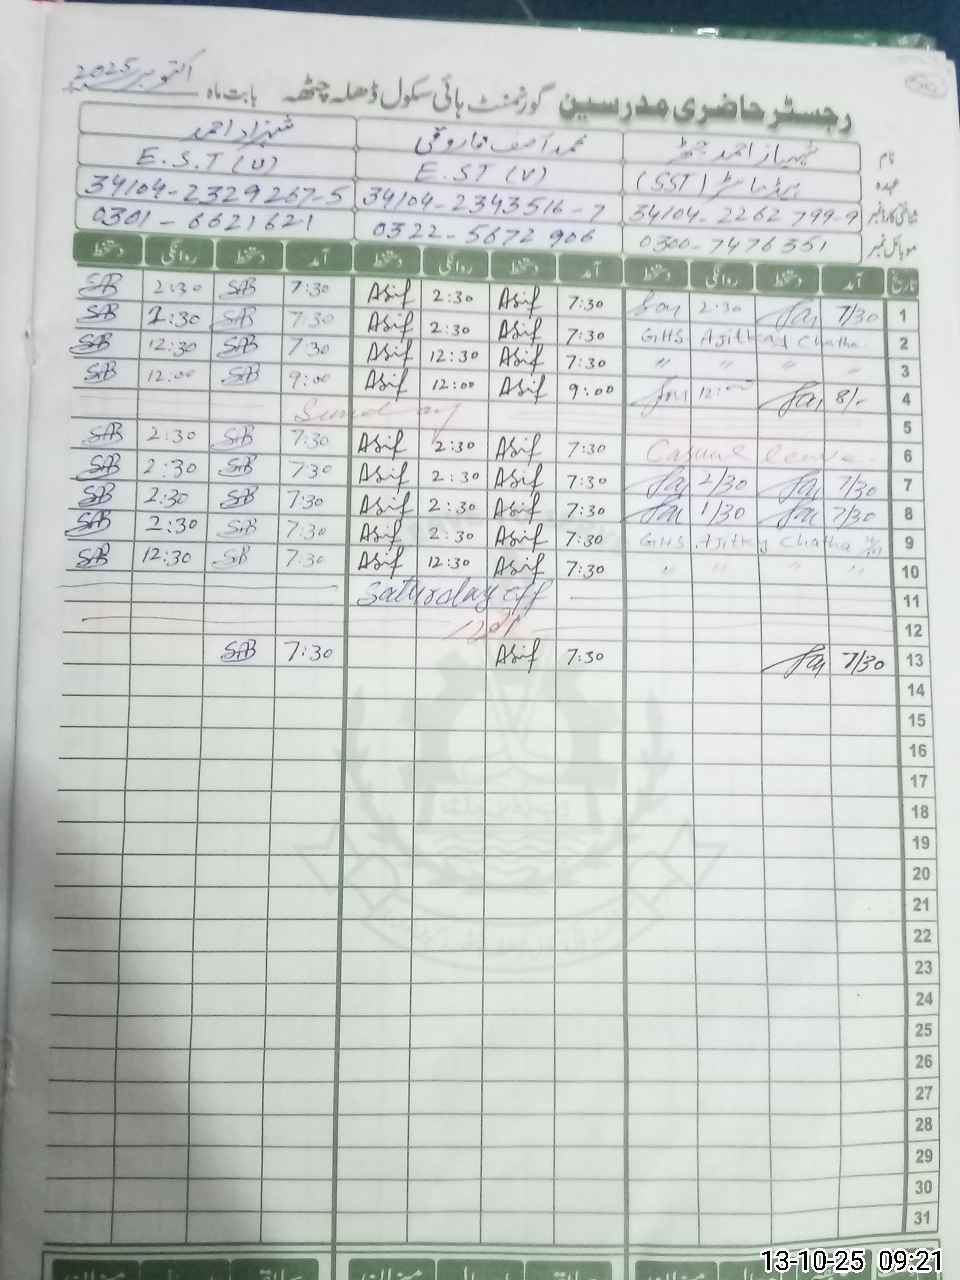 اکتوبر 2025
رجسٹر حاضری مدرسین گورنمنٹ ہائی سکول ڈھلہ چٹھہ بابت ماہ
نام شہباز احمد چٹھہ محمد آصف فاروقی شہزاد احمد
عہدہ (SST) E.ST (V) E.S.T (V)
شناختی کارڈ نمبر 34104-2262799-9 34104-2343516-7 34104-2329267-5
موبائل نمبر 0300-7476351 0322-5672906 0301-6621621
تاریخ آمد دستخط روانگی دستخط آمد دستخط روانگی دستخط آمد دستخط روانگی دستخط
SAB 2:30 SAB 7:30 Asif 2:30 Asif 7:30 2:30 7/30 1
SAB 2:30 SAB 7:30 Asif 2:30 Asif 7:30 GHS Chatha 2
SAB 12:30 SAB 7:30 Asif 12:30 Asif 7:30 " " " " 3
SAB 12:00 SAB 9:00 Asif 12:00 Asif 9:00 12:00 8/- 4
Sunday 5
SAB 2:30 SAB 7:30 Asif 2:30 Asif 7:30 Casual leave 6
SAB 2:30 SAB 7:30 Asif 2:30 Asif 7:30 2/30 7/30 7
SAB 2:30 SAB 7:30 Asif 2:30 Asif 7:30 1/30 7/30 8
SAB 2:30 SAB 7:30 Asif 2:30 Asif 7:30 GHS Chatha 9
SAB 12:30 SAB 7:30 Asif 12:30 Asif 7:30 " " " " 10
Saturday off 11
12
SAB 7:30 Asif 7:30 7/30 13
14
15
16
17
18
19
20
21
22
23
24
25
26
27
28
29
30
31
13-10-25 09:21